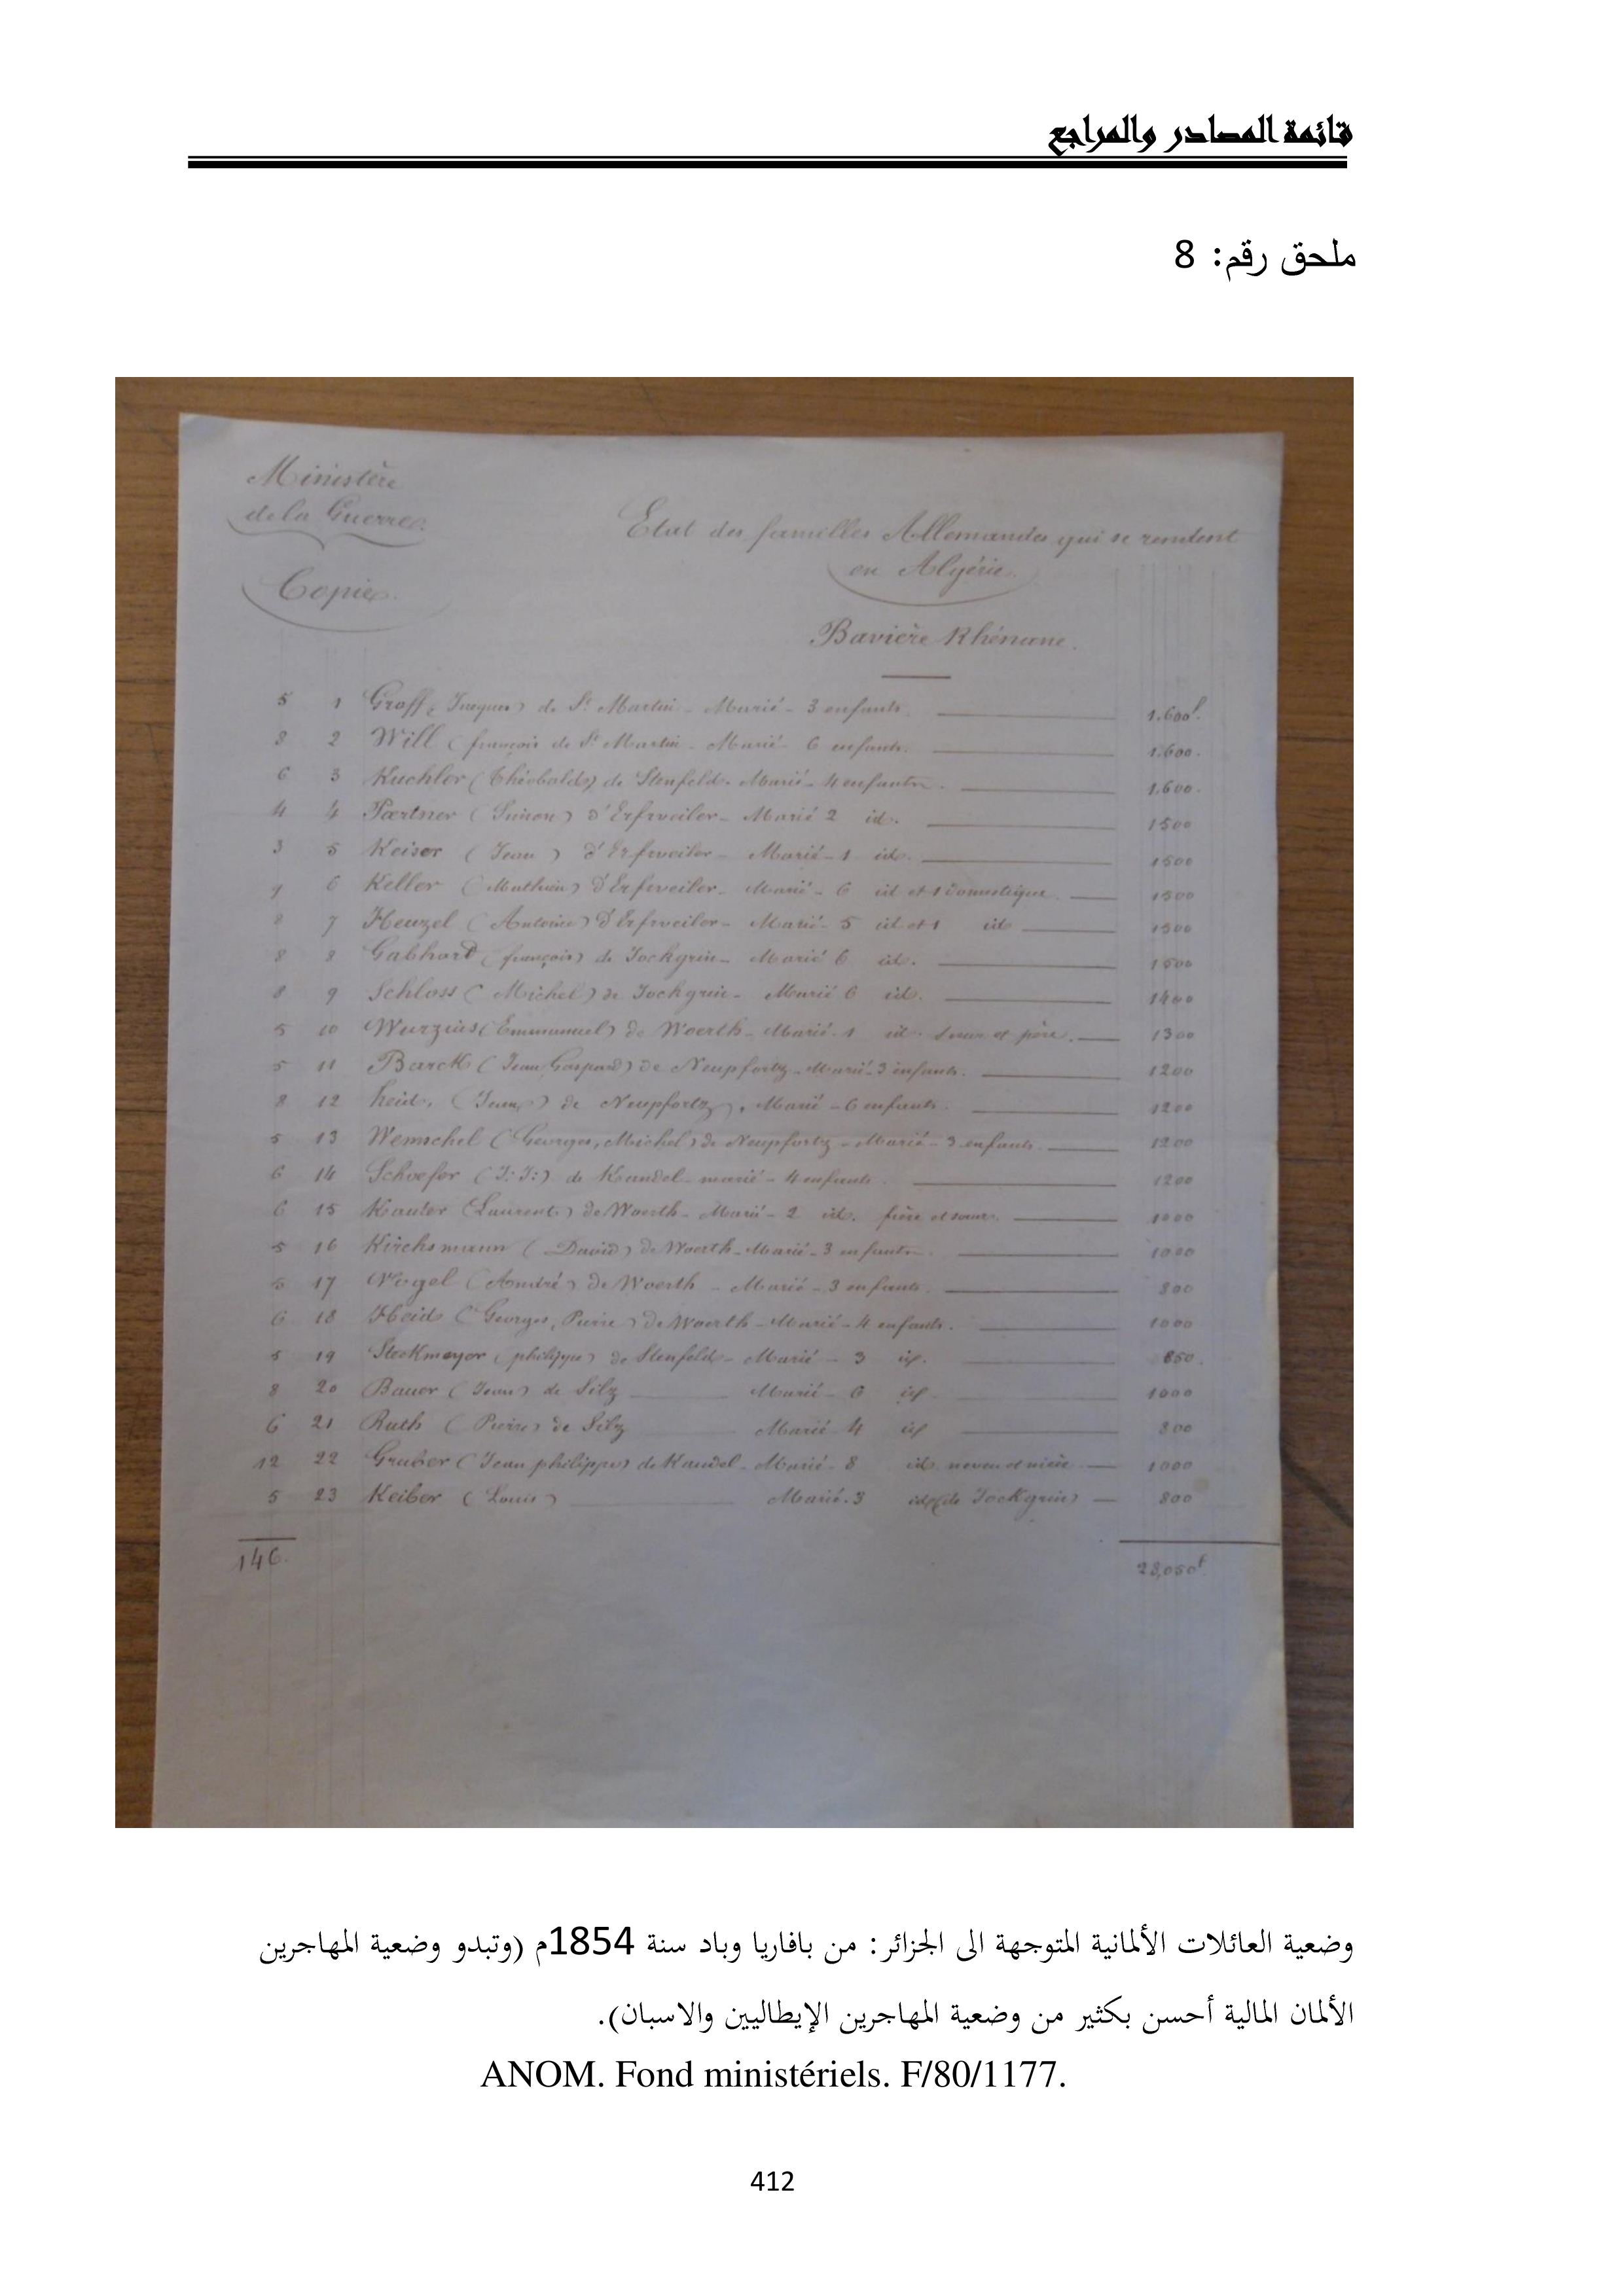 قائمة المصادر والمراجع
ملحق رقم: 8
Ministère
de la Guerre.
Copie.
Etat des familles Allemandes qui se rendent
en Algérie.
Bavière Rhénane.
5 1 Graff (Jacques) de St Martin - Marié - 3 enfants. 1.600f.
8 2 Will (françois de St Martin - Marié - 6 enfants. 1.600.
6 3 Kuchler (Théobalde) de Stenfeld. Marié - 4 enfants. 1.600.
4 4 Pærtner (Simon) d'Erfweiler - Marié 2 id. 1500
3 5 Keiser (Jean) d'Erfweiler - Marié - 1 id. 1500
9 6 Keller (Mathieu) d'Erfweiler - Marié - 6 id et 1 domestique. 1500
8 7 Heuzel (Antoine) d'Erfweiler - Marié - 5 id et 1 id 1500
8 8 Gabhard (françois) de Jockgrin - Marié 6 id. 1500
8 9 Schloss (Michel) de Jockgrin - Marié 6 id. 1400
5 10 Wurzius (Emmanuel) de Woerth - Marié - 1 id. soeur et père. 1300
5 11 Barck (Jean Gaspard) de Neupfortz - Marié - 3 enfants. 1200
8 12 heid, (Jean) de Neupfortz, Marié - 6 enfants. 1200
5 13 Wemschel (Georges, Michel) de Neupfortz - Marié - 3 enfants 1200
6 14 Schoefer (J: J:) de Kandel - marié - 4 enfants. 1200
6 15 Kauter (Laurent) de Woerth - Marié - 2 id. frère et soeur. 1000
5 16 Kirchsmann (David) de Woerth - Marié - 3 enfants. 1000
5 17 Vogel (André) de Woerth - Marié - 3 enfants. 800
6 18 Heid (Georges, Pierre) de Woerth - Marié - 4 enfants. 1000
5 19 Steckmeyer (philippe) de Stenfeld - Marié - 3 id. 850.
8 20 Bauer (Jean) de Silz Marié - 6 id 1000
6 21 Ruth (Pierre) de Silz Marié 4 id 800
12 22 Gruber (Jean philippe) de Kandel - Marié - 8 id. neveu et nièce 1000
5 23 Keiber (Louis) Marié - 3 id (de Jockgrin) 800
146. 28,050f
وضعية العائلات الألمانية المتوجهة الى الجزائر: من بافاريا وباد سنة 1854م (وتبدو وضعية المهاجرين
الألمان المالية أحسن بكثير من وضعية المهاجرين الإيطاليين والاسبان).
ANOM. Fond ministériels. F/80/1177.
412